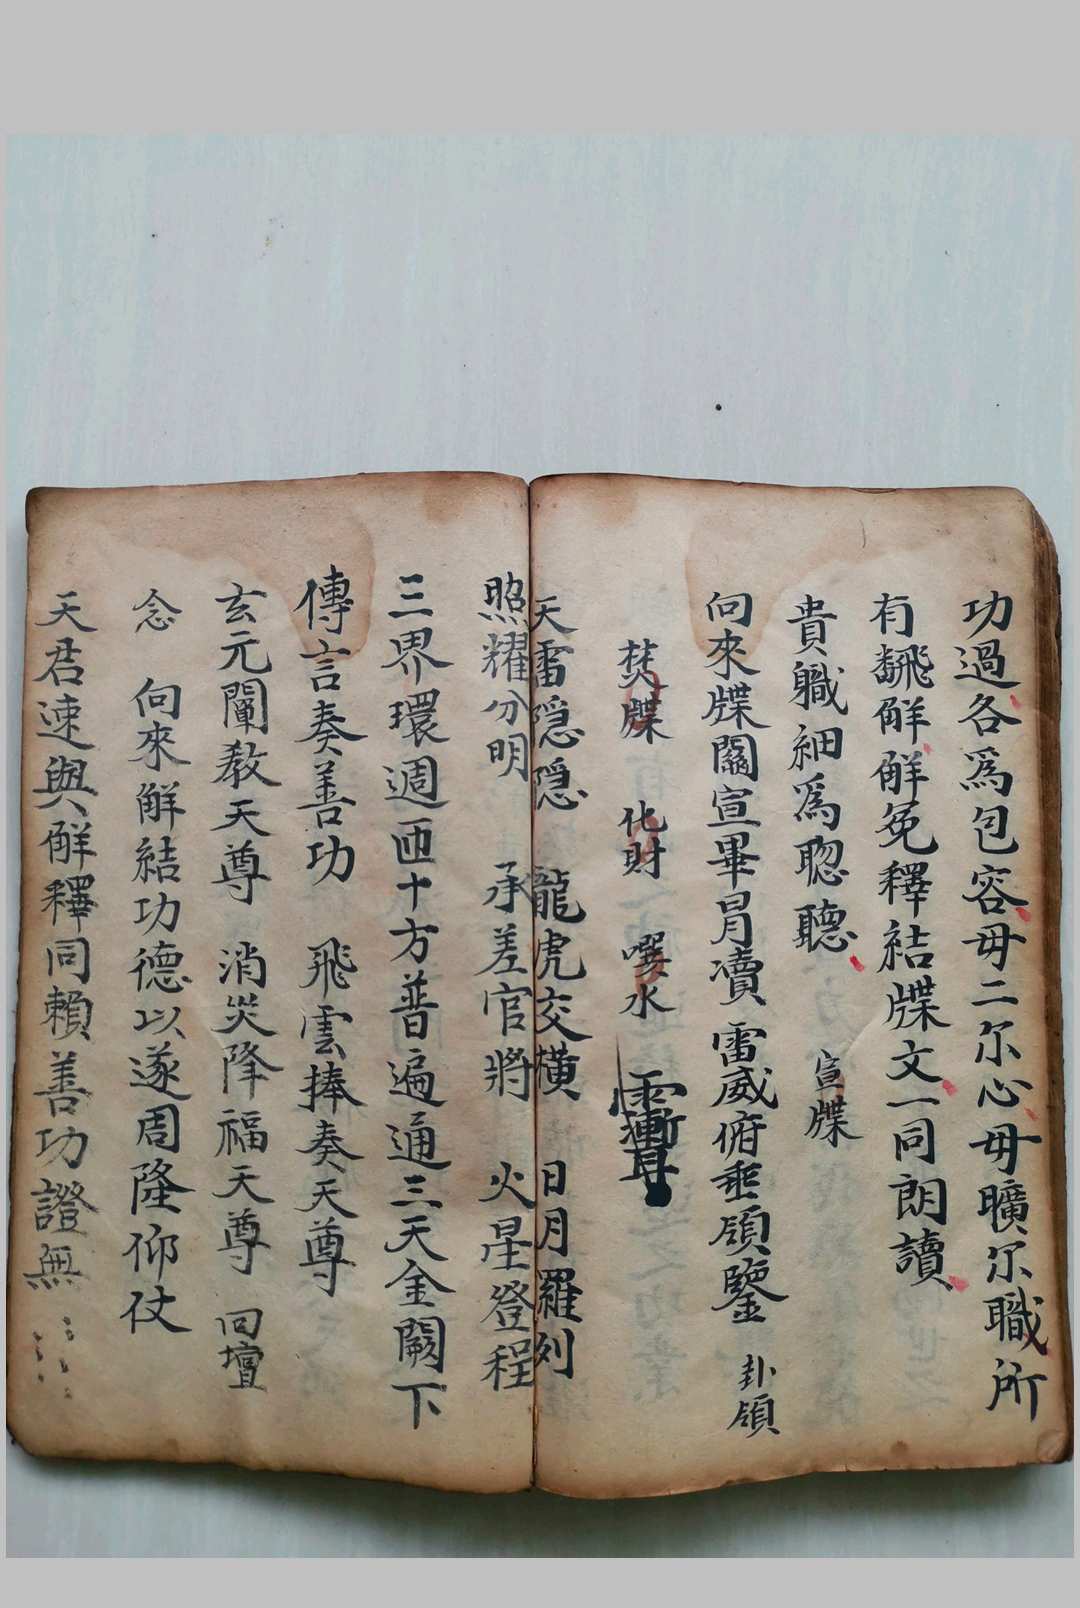 功過各爲包容毋二尔心毋曠尔職所
有飜解解冤釋結牒文一同朗讀
貴職細爲聦聽 宣牒
向來牒關宣畢冐凟雷威俯垂領鑒 卦領
焚牒 化財 噀水
天雷隠隠 龍虎交橫 日月羅列
照耀分明 承差官將 火星登程
三界環週匝十方普遍通三天金闕下
傳言奏善功 飛雲捧奏天尊
玄元闡教天尊 消災降福天尊 回壇
念 向來解結功德以遂周隆仰仗
天君速與解釋同賴善功證無